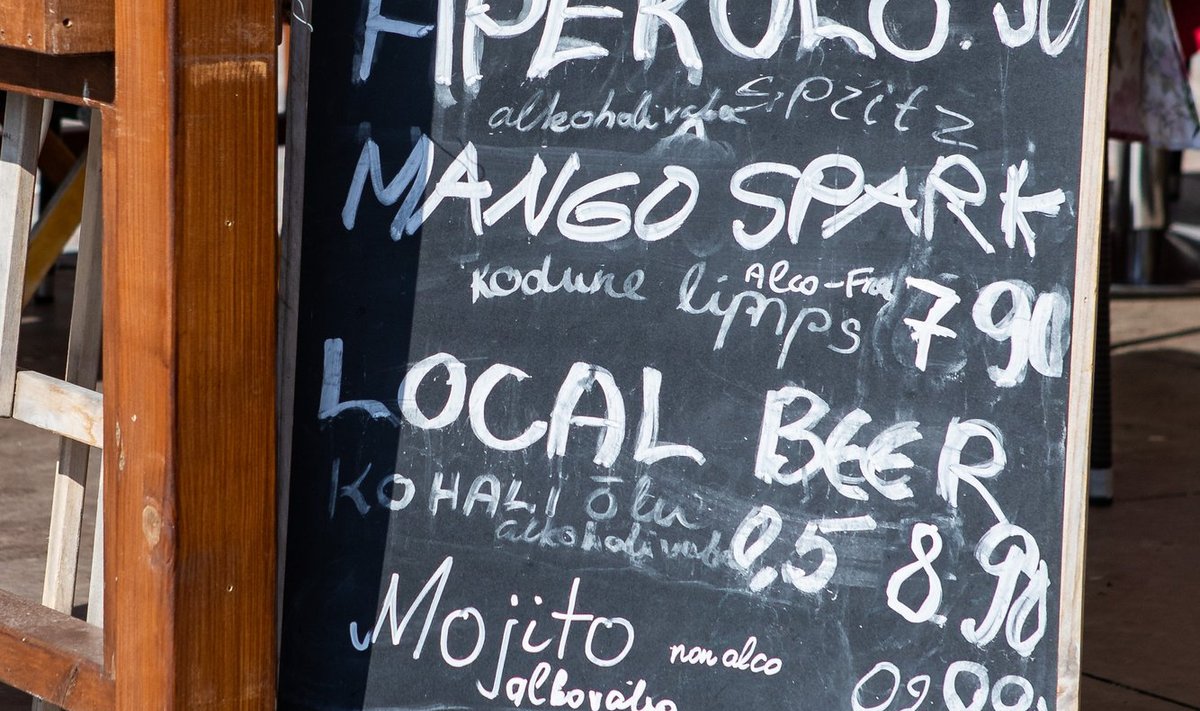 APEROLO.50
alkoholivaba spritz
MANGO SPARK
kodune limps Alco-Free 7 90
LOCAL BEER
KOHALI ÕLU
alkoholivaba 0,5 8,90
Mojito non alco
alkovaba